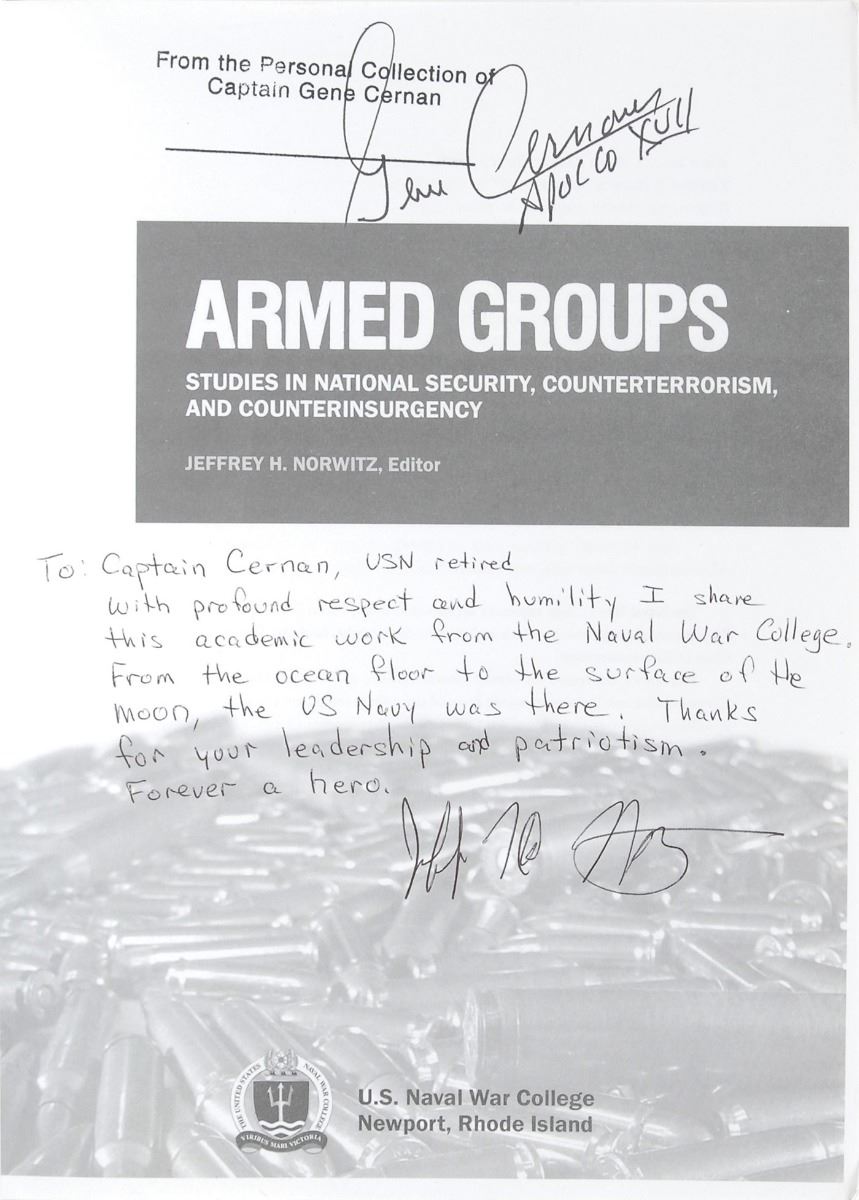 From the Personal Collection of
Captain Gene Cernan
Gene Cernan
APOLLO XVII
ARMED GROUPS
STUDIES IN NATIONAL SECURITY, COUNTERTERRORISM,
AND COUNTERINSURGENCY
JEFFREY H. NORWITZ, Editor
To: Captain Cernan, USN retired
with profound respect and humility I share
this academic work from the Naval War College.
From the ocean floor to the surface of the
moon, the US Navy was there. Thanks
for your leadership and patriotism.
Forever a hero.
THE UNITED STATES NAVAL WAR COLLEGE
VIRIBUS MARI VICTORIA
U.S. Naval War College
Newport, Rhode Island